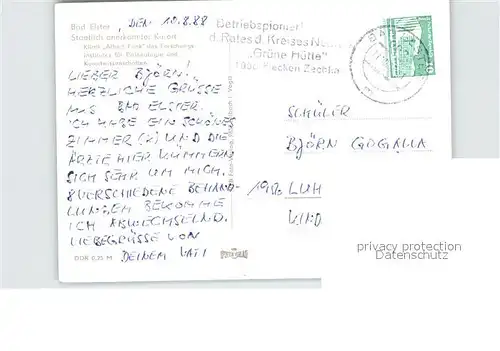 Bad Elster, DEN 10.8.88
Staatlich anerkannter Kurort
Klinik „Albert Funk“ des Forschungs-
instituts für Balneologie und
Kurortwissenschaften
LIEBER BJÖRN!
HERZLICHE GRÜSSE
AUS BAD ELSTER.
ICH HABE EIN SCHÖNES
ZIMMER (2) UND DIE
ÄRZTE HIER KÜMMERN
SICH SEHR UM MICH.
8 VERSCHIEDENE BEHAND-
LUNGEN BEKOMME
ICH ABWECHSELND.
LIEBE GRÜSSE VON
DEINEM VATI
DDR 0,25 M
Betriebspionier
d. Rates d. Kreises
„Grüne Hütte“
Flecken Zechlin
10
SCHÜLER
BJÖRN GOGALLA
LUH
LIND
privacy protection
Datenschutz